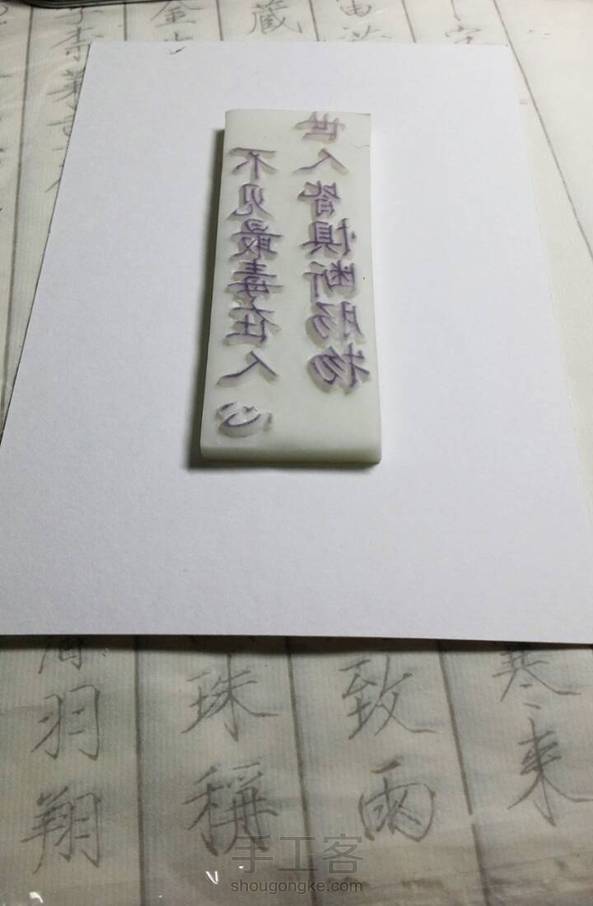 世人皆惧断肠物
不见最毒在人心
藏
金
李
寒来
致雨
珠稱
羽翔
手工客
shougongke.com